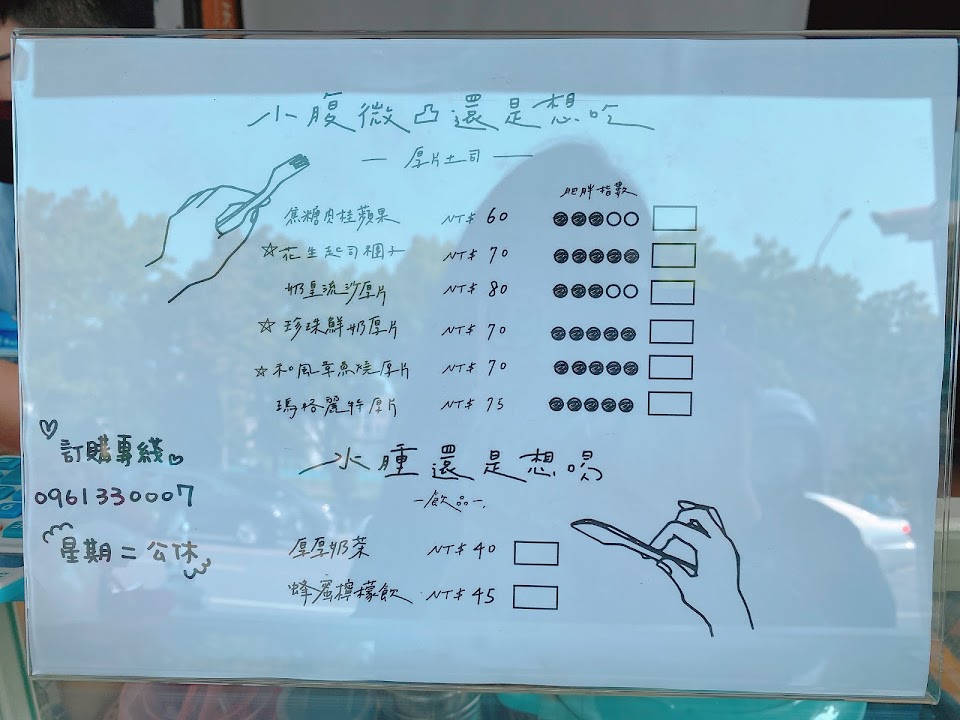 小腹微凸還是想吃
— 厚片土司 —
肥胖指數
焦糖肉桂蘋果 NT$ 60 ●●●○○
☆花生起司糰子 NT$ 70 ●●●●●
奶皇流沙厚片 NT$ 80 ●●●○○
☆珍珠鮮奶厚片 NT$ 70 ●●●●●
☆和風章魚燒厚片 NT$ 70 ●●●●●
瑪格麗特厚片 NT$ 75 ●●●●●
水腫還是想喝
—飲品—
厚厚奶茶 NT$ 40
蜂蜜檸檬飲 NT$ 45
♡訂購專綫♡
0961330007
星期二公休